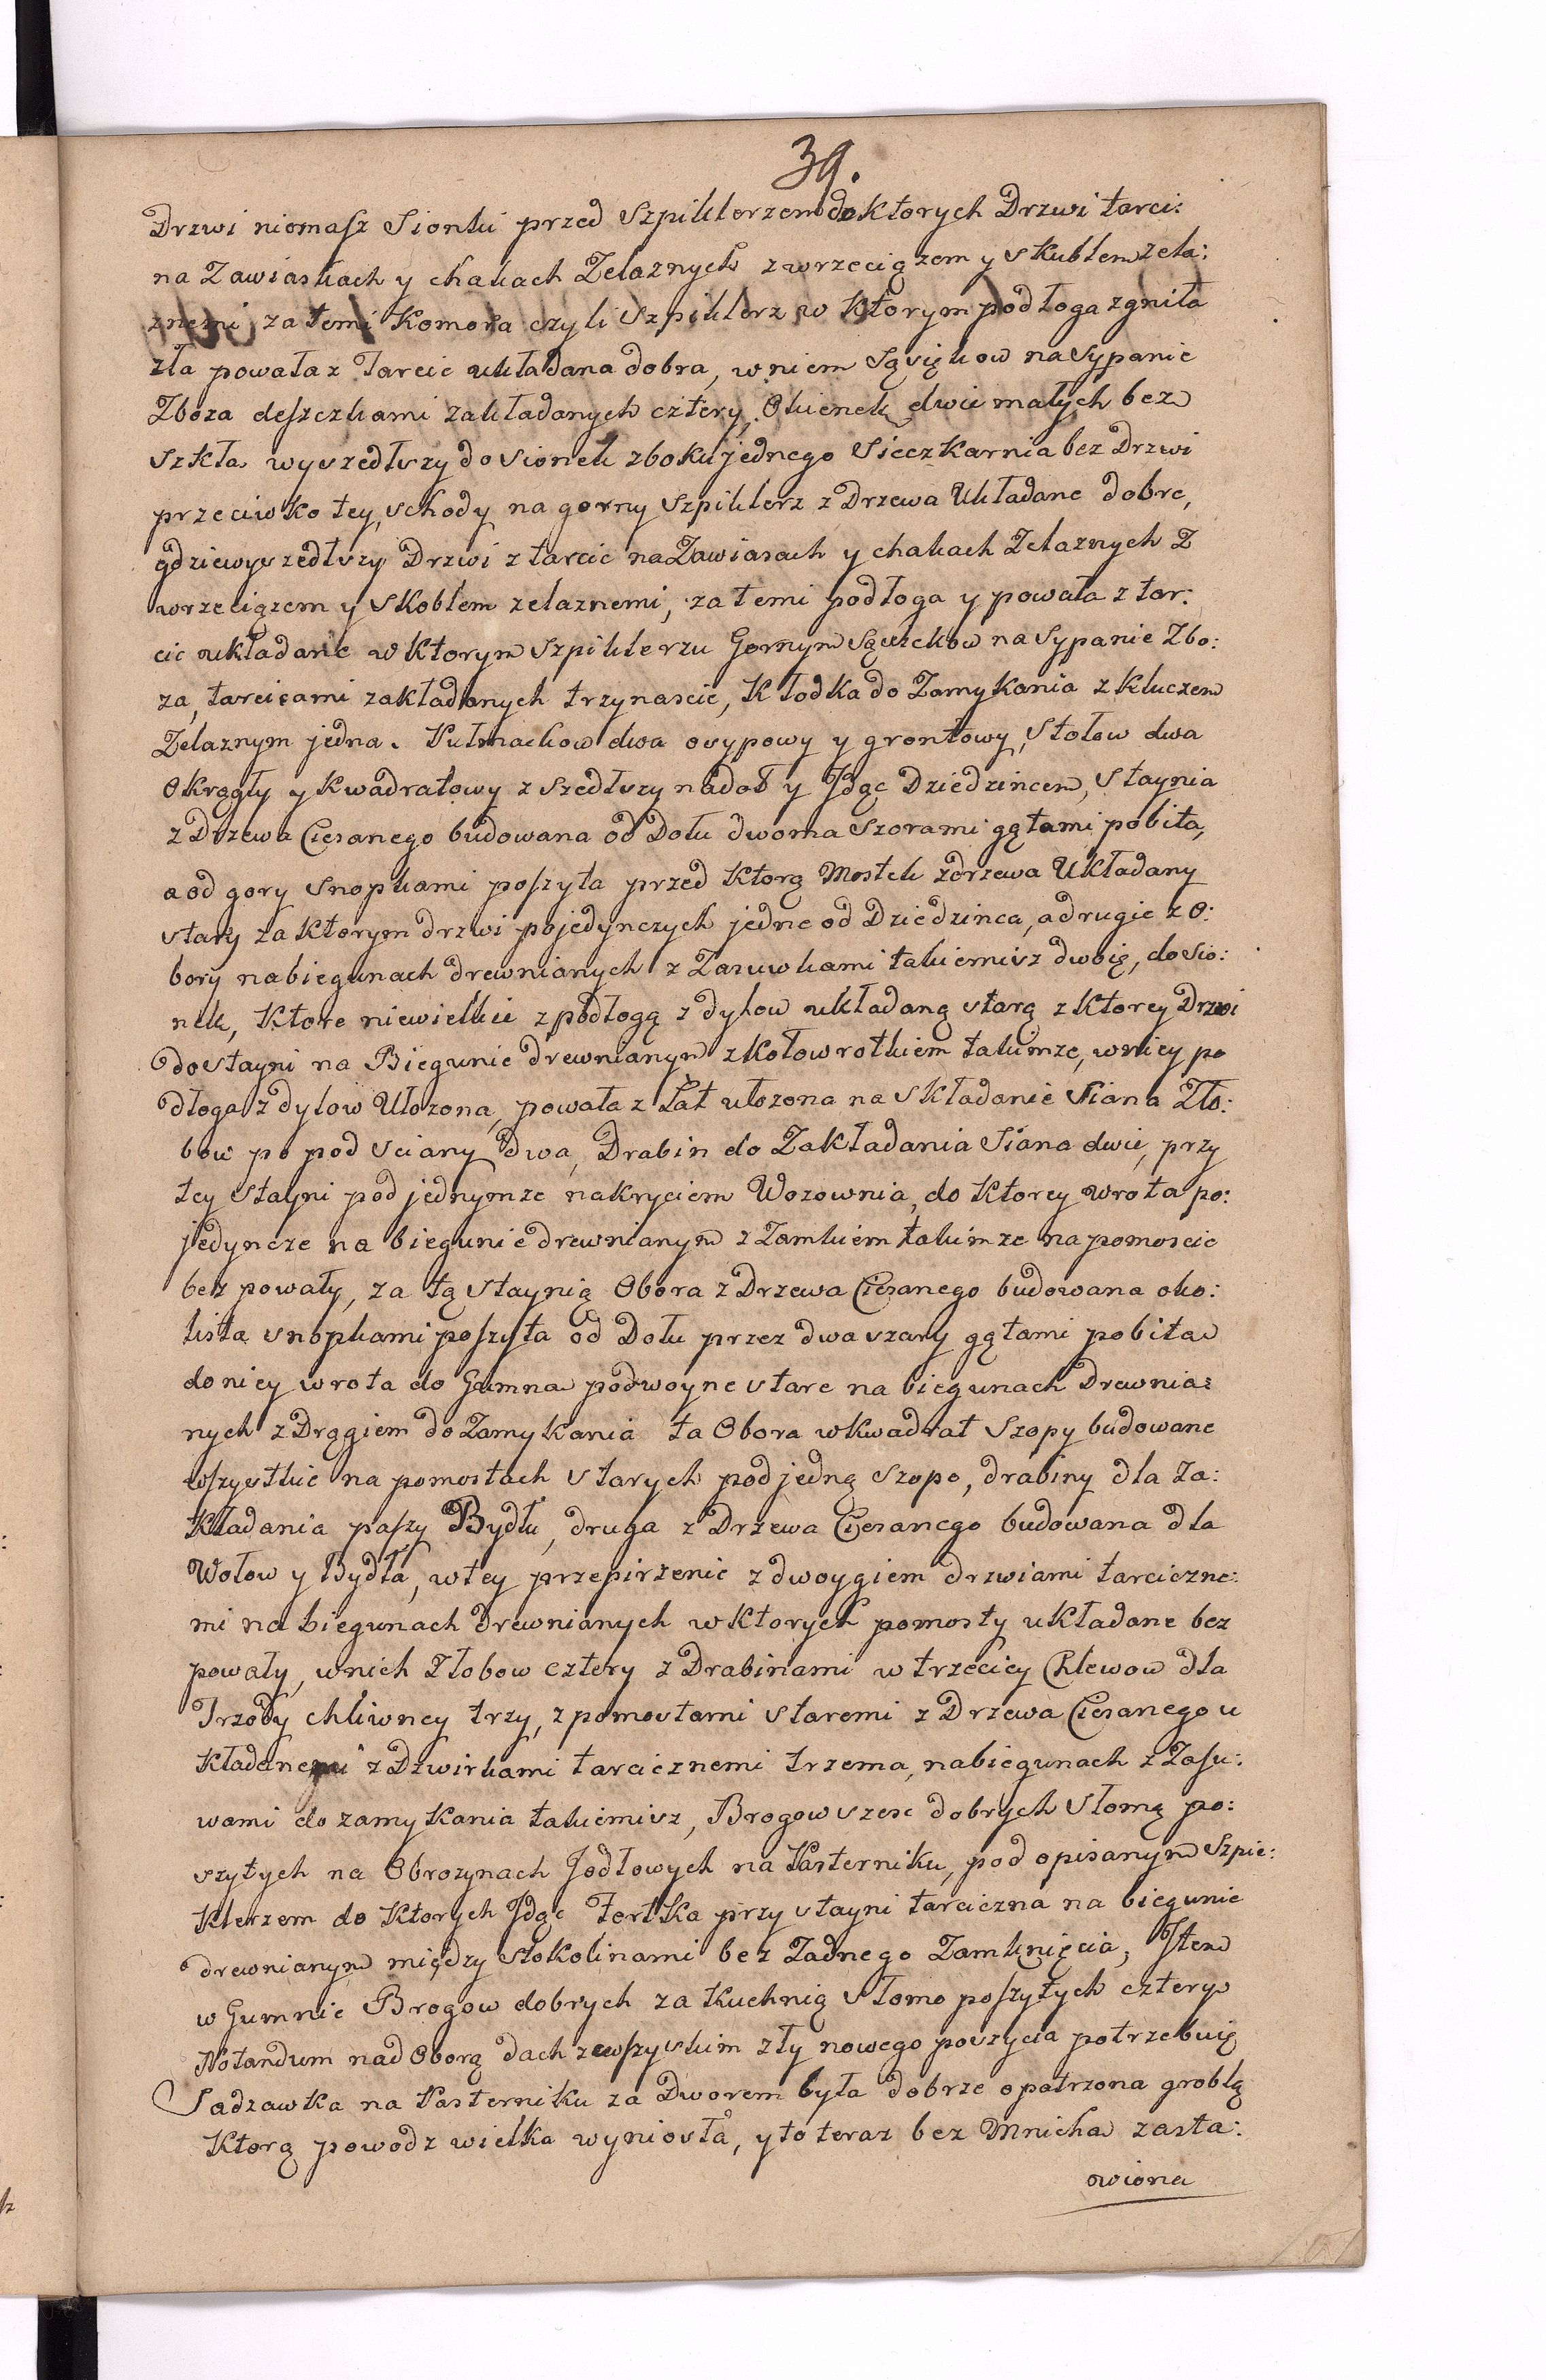 39.
Drzwi niemasz Sionki przed Szpiklerzem do Ktorych Drzwi tarci:
na Zawiaskach y chakach Zelaznych z wrzeciązem y skublem zela:
znemi za temi Komora czyli Szpiklerz w Ktorym podłoga zgniła
zła powała z Tarcic układana dobra, w niem Sąsiękow na Sypanie
Zboza deszczkami zakładanych cztery, Okienek dwie małych bez
Szkła wyszedłszy do Sionek z boku jednego Sieczkarnia bez Drzwi
przeciwko tey, schody na gorny Szpiklerz z Drzewa Układane dobre,
gdzie wyszedłszy Drzwi z tarcic na Zawiasach y chakach Zelaznych Z
wrzeciązem y Skoblem zelaznemi, za temi podłoga y powała z tar:
cic układane w Ktorym Szpiklerzu Gornym Sąsieckow na Sypanie Zbo:
za, tarcicami zakładanych trzynascie, Kłodka do Zamykania z Kluczem
Zelaznym jedna. Pułmackow dwa osypowy y grontowy, Stołow dwa
Okrągły y Kwadratowy z szedłszy na doł y Jdąc Dziedzińcem, Staynia
z Drzewa Ciesanego budowana od Dołu dwoma Szorami gątami pobita,
a od gory Snopkami poszyta przed Ktorą Mostek z drzewa Układany
stary za Ktorym drzwi pojedynczych jedne od Dziedzinca, a drugie z O:
bory na biegunach drewnianych z Zasuwkami takiemisz dwoię, do Sio:
nek, Ktore niewielkie z podłogą z dylow układaną starą z Ktorey Drzwi
do stayni na Biegunie drewnianym z Kołowrotkiem takimze, w niey po
dłoga z dylow Ułozona, powała z Łat ułozona na składanie Siana Zło:
bow po pod Sciany dwa, Drabin do Zakładania Siana dwie, przy
tey Stayni pod jednymze nakryciem Wozownia, do Ktorey wrota po:
jedyncze na biegunie drewnianym z Zamkiem takimze na pomoscie
bez powały, za tą Staynią Obora z Drzewa Ciesanego budowana oko:
lista snopkami poszyta od Dołu przez dwa szary gątami pobita
do niey wrota do Gumna podwoyne stare na biegunach Drewnia:
nych z Drągiem do Zamykania ta Obora w Kwadrat Szopy budowane
wszystkie na pomostach starych pod jedną Szopo, drabiny dla Za:
Kładania paszy Bydłu, druga z Drzewa Ciesanego budowana dla
Wołow y Bydła, w tey przepirzenie z dwoygiem drzwiami tarciczne:
mi na biegunach drewnianych w Ktorych pomosty układane bez
powały, w nich Złobow cztery z Drabinami w trzeciey Chlewow dla
Trzody chliwney trzy, z pomostami staremi z Drzewa Ciesanego u
Kładanemi z Dzwirkami tarcicznemi trzema, na biegunach z Zasu:
wami do zamykania takiemisz, Brogow szesc dobrych Słomą po:
szytych na Obrozynach Jodłowych na Pasterniku, pod opisanym Szpie:
Klerzem do Ktorych Jdąc Fortka przy stayni tarciczna na biegunie
drewnianym między Stokolinami bez Zadnego Zamknięcia, Item
w Gumnie Brogow dobrych za Kuchnią Słomo poszytych cztery
Notandum nad Oborą dach z wszyskim zły nowego poszycia potrzebuię
Sadzawka na Pasterniku za Dworem była dobrze opatrzona groblą
Ktorą powodz wielka wyniosła, y to teraz bez Mnicha zasta:
owiona